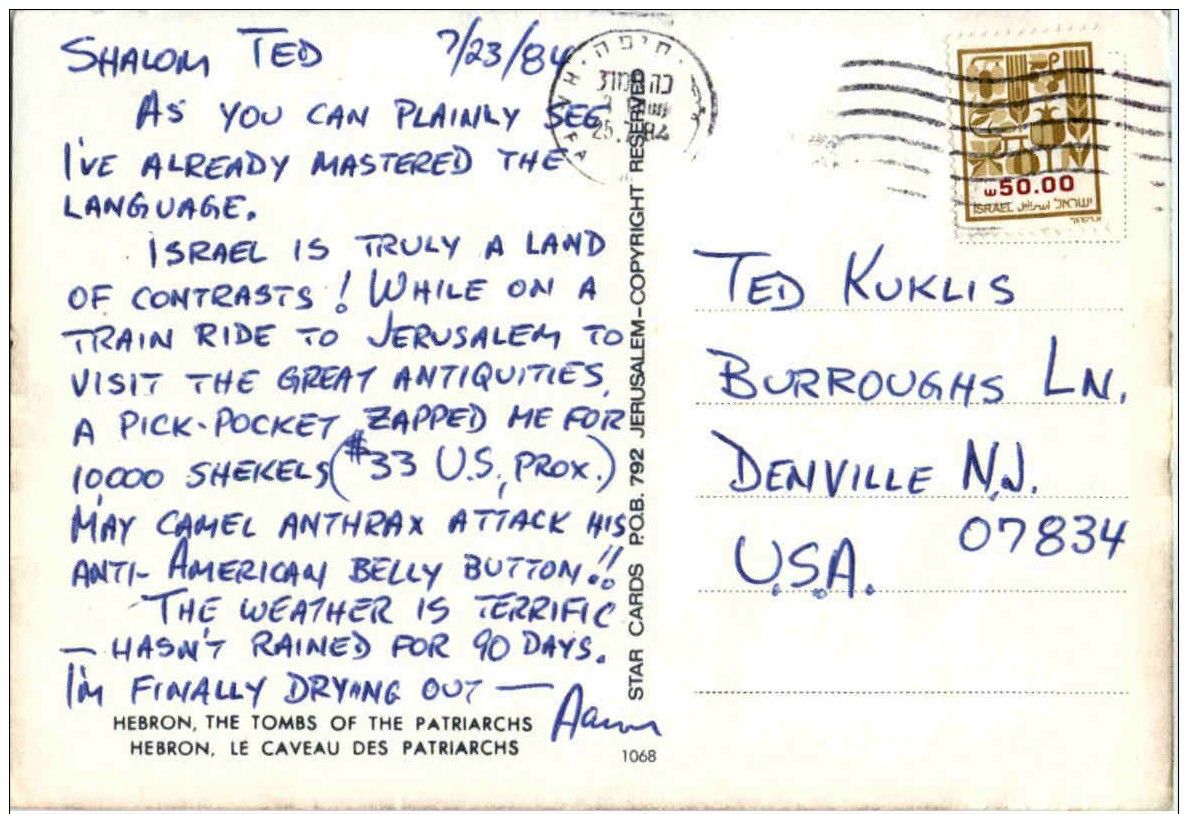 SHALOM TED 7/23/84
AS YOU CAN PLAINLY SEE
I'VE ALREADY MASTERED THE
LANGUAGE.
ISRAEL IS TRULY A LAND
OF CONTRASTS! WHILE ON A
TRAIN RIDE TO JERUSALEM TO
VISIT THE GREAT ANTIQUITIES,
A PICK-POCKET ZAPPED ME FOR
10,000 SHEKELS ($33 U.S., PROX.)
MAY CAMEL ANTHRAX ATTACK HIS
ANTI-AMERICAN BELLY BUTTON!!
THE WEATHER IS TERRIFIC
— HASN'T RAINED FOR 90 DAYS.
I'M FINALLY DRYING OUT —
Aaron
HEBRON, THE TOMBS OF THE PATRIARCHS
HEBRON, LE CAVEAU DES PATRIARCHS
1068
STAR CARDS P.O.B. 792 JERUSALEM-COPYRIGHT RESERVED
חיפה
25.7.84
ש50.00
ISRAEL اسرائيل ישראל
TED KUKLIS
BURROUGHS LN.
DENVILLE N.J.
07834
U.S.A.